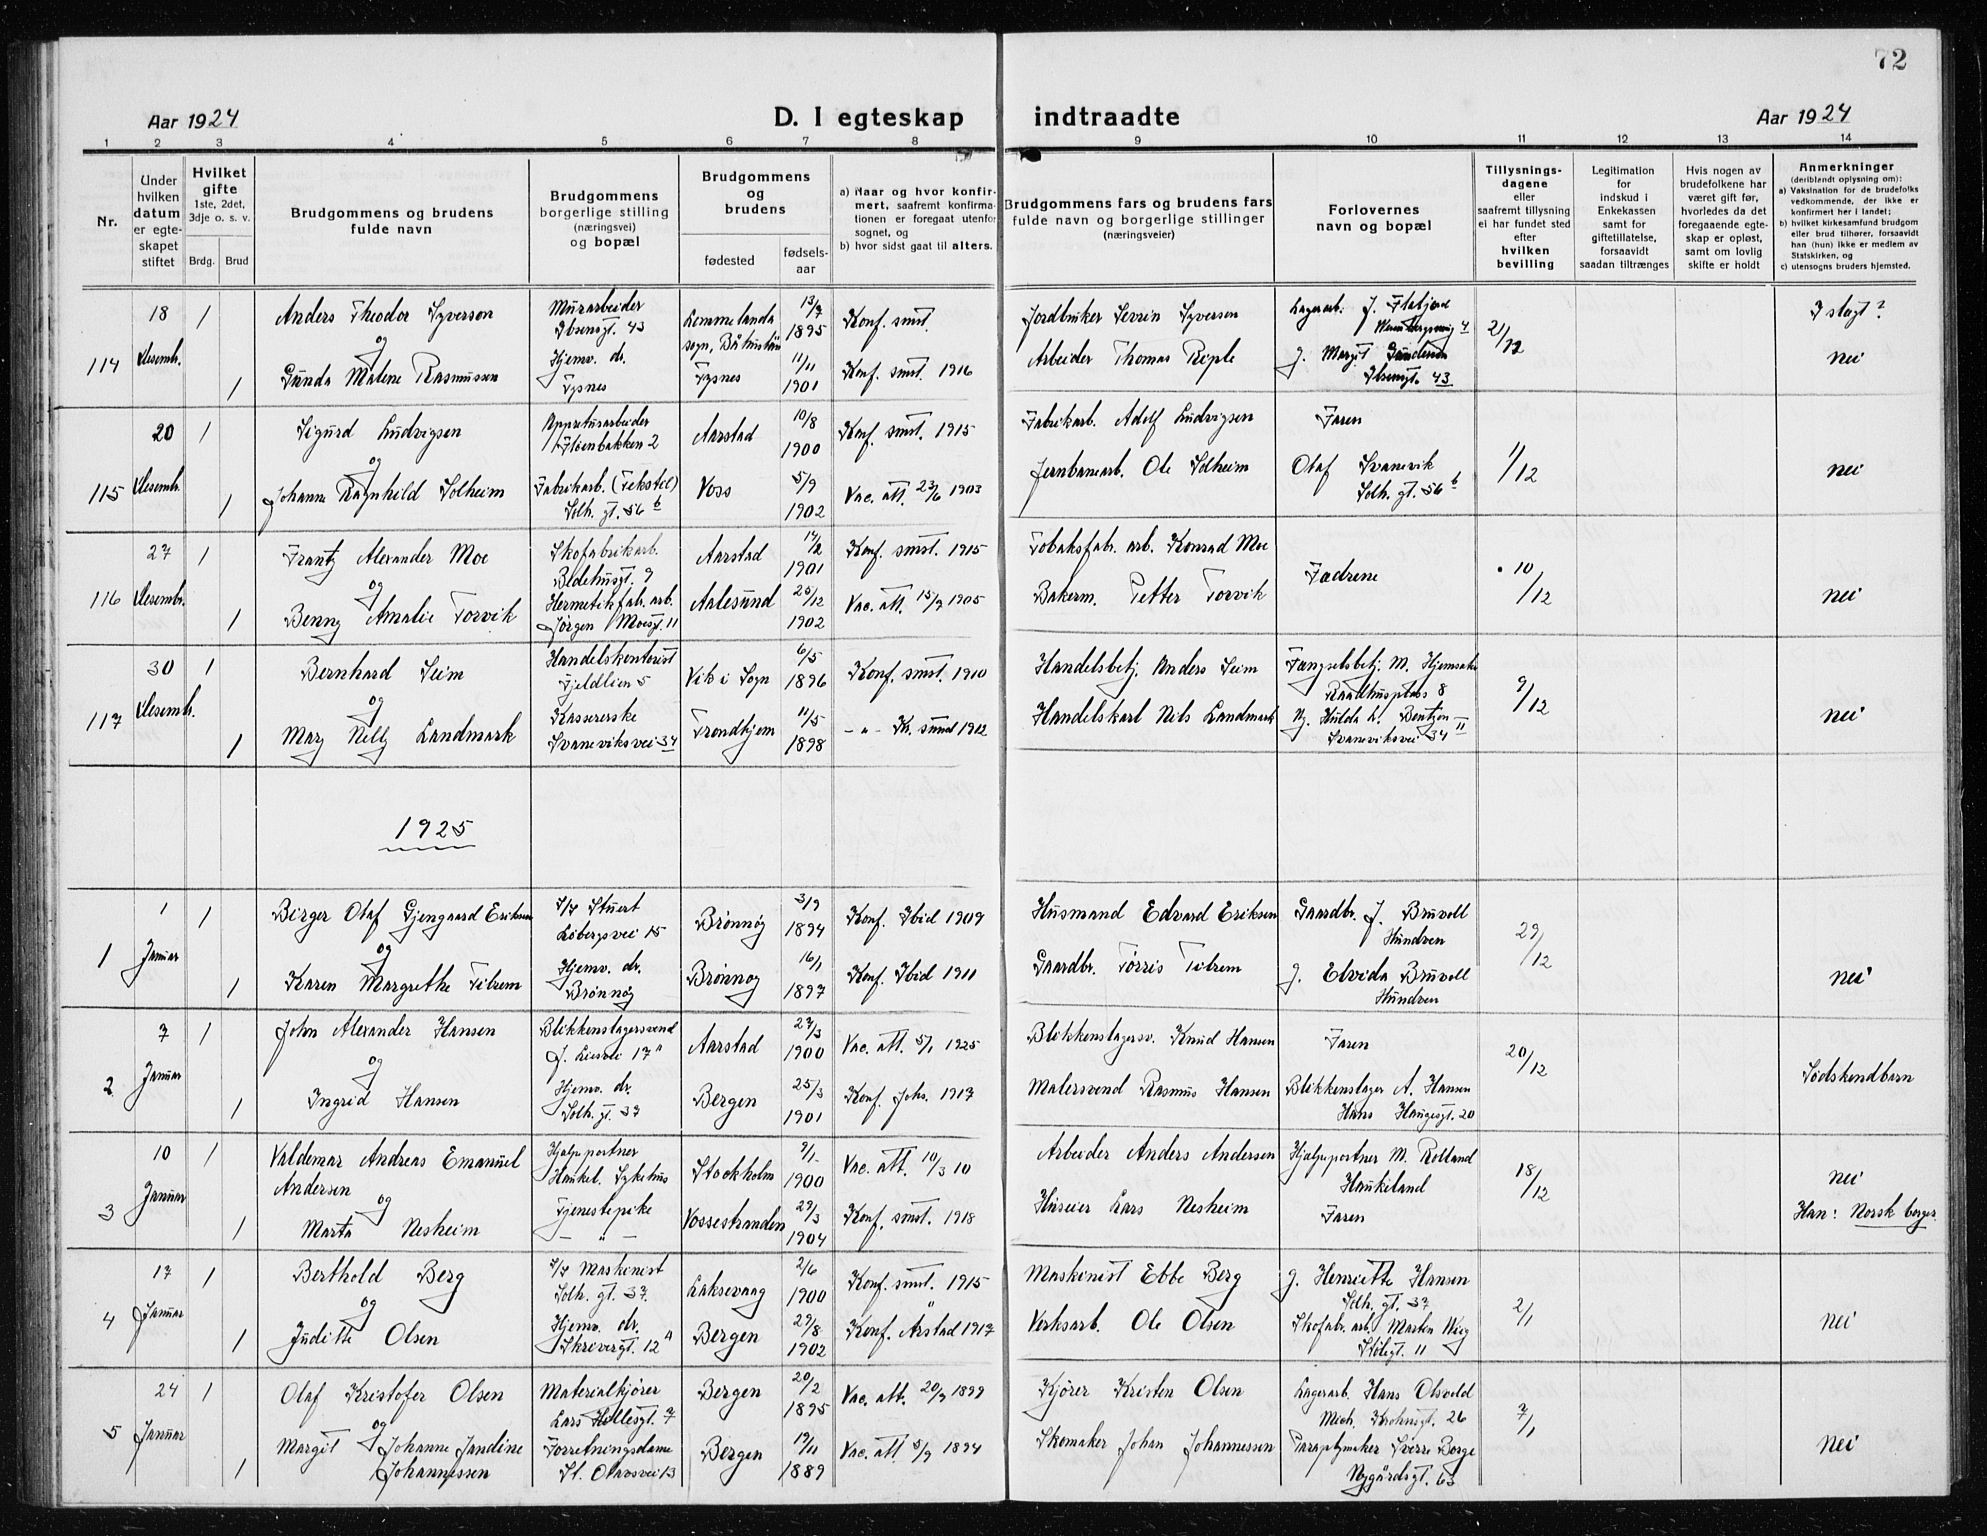 72
Aar 1924
D. I egteskap indtraadte
Aar 1924
1 2 3 4 5 6 7 8 9 10 11 12 13 14
Nr.
Under hvilken datum er egteskapet stiftet
Hvilket gifte 1ste, 2det, 3dje o. s. v.
Brdg. Brud
Brudgommens og brudens fulde navn
Brudgommens borgerlige stilling (næringsvei) og bopæl
Brudgommens og brudens
fødested
fødselsaar
a) Naar og hvor konfirmert, saafremt konfirmationen er foregaat utenfor sognet, og
b) hvor sidst gaat til alters.
Brudgommens fars og brudens fars fulde navn og borgerlige stillinger (næringsveier)
Forlovernes navn og bopæl
Tillysningsdagene eller saafremt tillysning ei har fundet sted efter hvilken bevilling
Legitimation for indskud i Enkekassen samt for giftetillatelse, forsaavidt saadan tiltrænges
Hvis nogen av brudefolkene har været gift før, hvorledes da det foregaaende egteskap er opløst, samt om lovlig skifte er holdt
Anmerkninger (deriblandt oplysning om): a) Vaksination for de brudefolks vedkommende, der ikke er konfirmert her i landet; b) hvilket kirkesamfund brudgom eller brud tilhører, forsaavidt han (hun) ikke er medlem av Statskirken, og c) utensogns bruders hjemsted.
114 18 Desemb. 1 Anders Theodor Syverson Murarbeider Ibsensgt. 43 13/7 1895 Konf. smst. Jordbruker Severin Syverson Lagerarb. J. 21/12 I slegt?
og
1 Gunda Malene Rasmussen Hjemv. dr. Tysnes Tysnes 11/11 1901 Konf. smst. 1916 Arbeider Thomas Reple g. Margit Ibsensgt. 43 nei
115 20 Desemb. 1 Sigurd Ludvigsen Appreturarbeider Fløenbakken 2 Aarstad 10/8 1900 Konf. smst. 1915 Fabrikarb. Adolf Ludvigsen Faren 1/12
og
1 Johanne Ragnhild Solheim Fabrikarb. (Tekstil) Solh. gt. 56 b Voss 5/9 1902 Vac. att. 23/6 1903 Jernbanearb. Ole Solheim Olaf Svanevik Solh. gt. 56 b nei
116 27 Desembr. 1 Frantz Alexander Moe Skofabrikarb. Bedehusgt. 9 Aarstad 1901 Konf. smst. 1915 Tobaksfab. arb. Konrad Moe Fædrene 10/12
og
1 Benny Amalie Torvik Hermetikfab. arb. Jørgen Moesgt. 11 Aalesund 25/12 1902 Vac. att. 15/9 1905 Bakerm. Petter Torvik nei
117 30 Desemb. 1 Bernhard Seim Handelskontorist Fjeldlien 5 Vik i Sogn 6/5 1896 Konf. smst. 1910 Handelsbetj. Anders Seim Fængselsbetj. M. Raadhusplass 8 9/12
og
1 Mary Nelly Landmark Kassererske Svaneviksvei 34 Trondhjem 11/5 1898 - " - Kr. sund 1912 Handelskarl Nils Landmark Hulda L. Bentzon Svaneviksvei 34 II nei
1925
1 1 Januar 1 Birger Olaf Gjengaard Eriksen S/S Stuert Løbergsvei 15 Brønnøy 3/9 1894 Konf. Ibid 1909 Husmand Edvard Eriksen Gaardbr. J. Bruvoll Hundven 29/12
og
1 Karen Margrethe Tilrem Hjemv. dr. Brønnøy Brønnøy 16/1 1897 Konf. Ibid 1911 Gaardbr. Tørris Tilrem g. Elvida Bruvoll Hundven nei
2 7 Januar 1 John Alexander Hansen Blikkenslagersvend J. Liesvei 17 a Aarstad 27/3 1900 Vac. att. 5/1 1925 Blikkenslagersv. Knud Hansen Faren 20/12
og
1 Ingrid Hansen Hjemv. dr. Solh. gt. 37 Bergen 25/3 1901 Konf. Johs. 1917 Malersvend Rasmus Hansen Blikkenslager A. Hansen Hans Haugesgt. 20 Sødskendbarn
3 10 Januar 1 Valdemar Andreas Emanuel Andersen Hjælpeportner Haukel. Sykehus Stockholm 9/1 1900 Vac. att. 10/3 10 Arbeider Anders Andersen Hjælpeportner M. Rolland Haukeland 18/12 nei
og
1 Marta Nesheim Tjenestepike - " - Vossestranden 29/3 1904 Konf. smst. 1918 Huseier Lars Nesheim Faren Han: Norsk borger.
4 17 Januar 1 Berthold Berg S/S Maskinist Solh. gt. 37. Laksevaag 2/6 1900 Konf. smst. 1915 Maskinist Ebbe Berg g. Henriette Hansen Solh. gt. 37 2/1
og
1 Judith Olsen Hjemv. dr. Skrivergt. 12 a Bergen 29/8 1902 Konf. Årstad 1917 Verksarb. Ole Olsen Skofabr. arb. Marten Wiig Stølegt. 11 nei
5 24 Januar 1 Olaf Kristofer Olsen Materialkjører Lars Hillesgt. 7 Bergen 20/2 1895 Vac. att. 20/9 1899 Kjører Kristen Olsen Lagerarb. Hans Olsvold Mich. Krohnsgt. 26 7/1
og
1 Margit Johanne Jandine Johannessen Forretningsdame St. Olavsvei 13 Bergen 19/11 1889 Vac. att. 5/9 1894 Skomaker Johan Johannessen Paraplymaker Sverre Borge Nygårdsgt. 63 nei